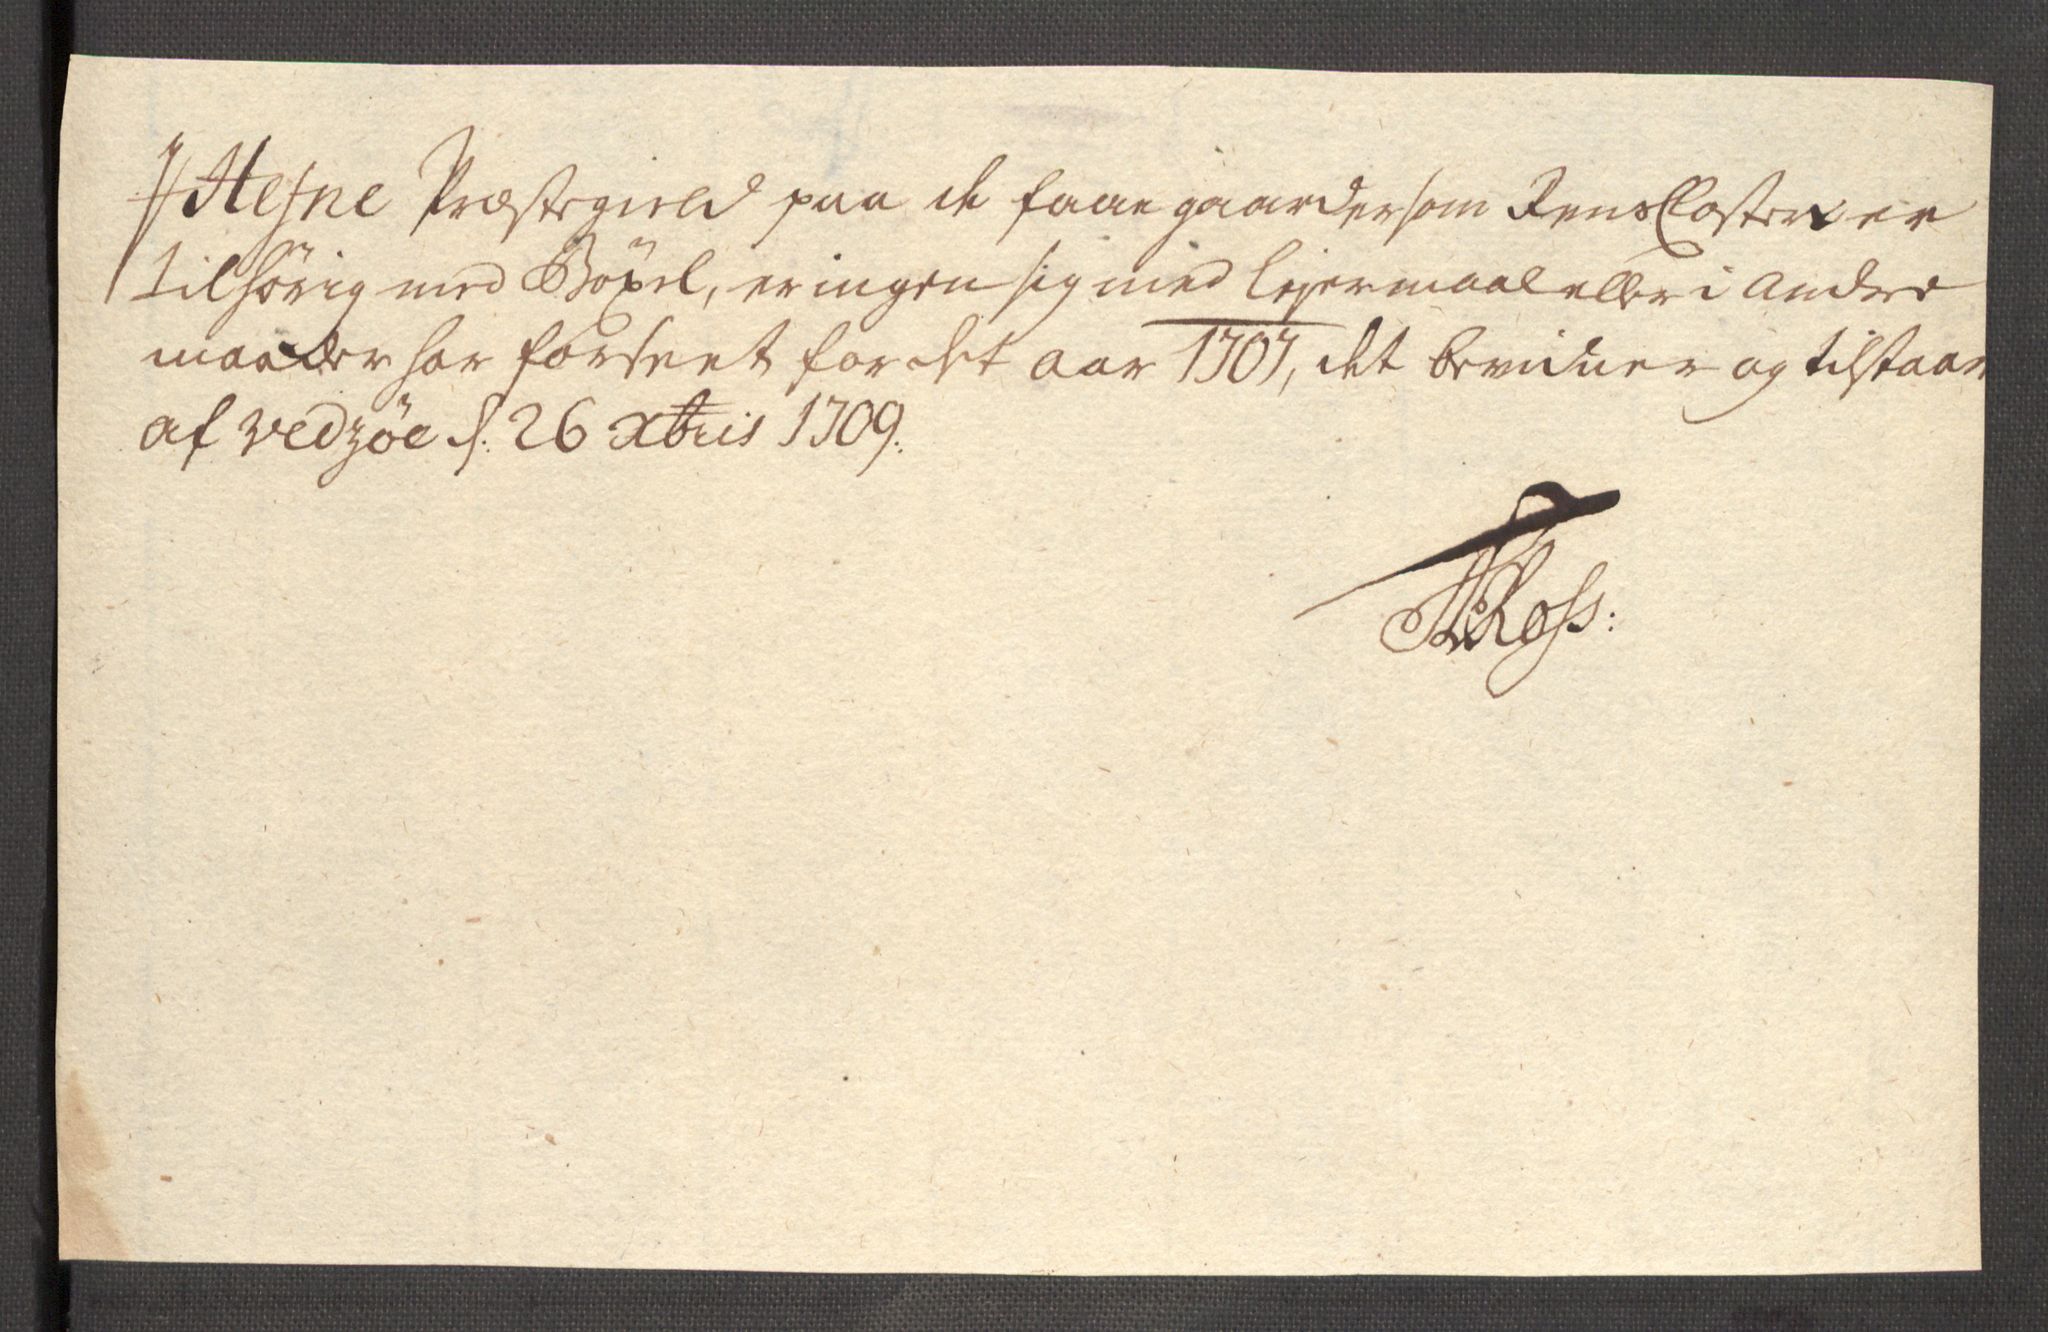 J Hefne Præstegield paa de faae gaarder som Rens Closter er
tilhörig med Böxel, er ingen sig med leÿermaal eller i Andre
maader har forseet for det Aar 1707, det bevidner og tilstaar
af vedzöe d. 26 xbris 1709.
Ross: